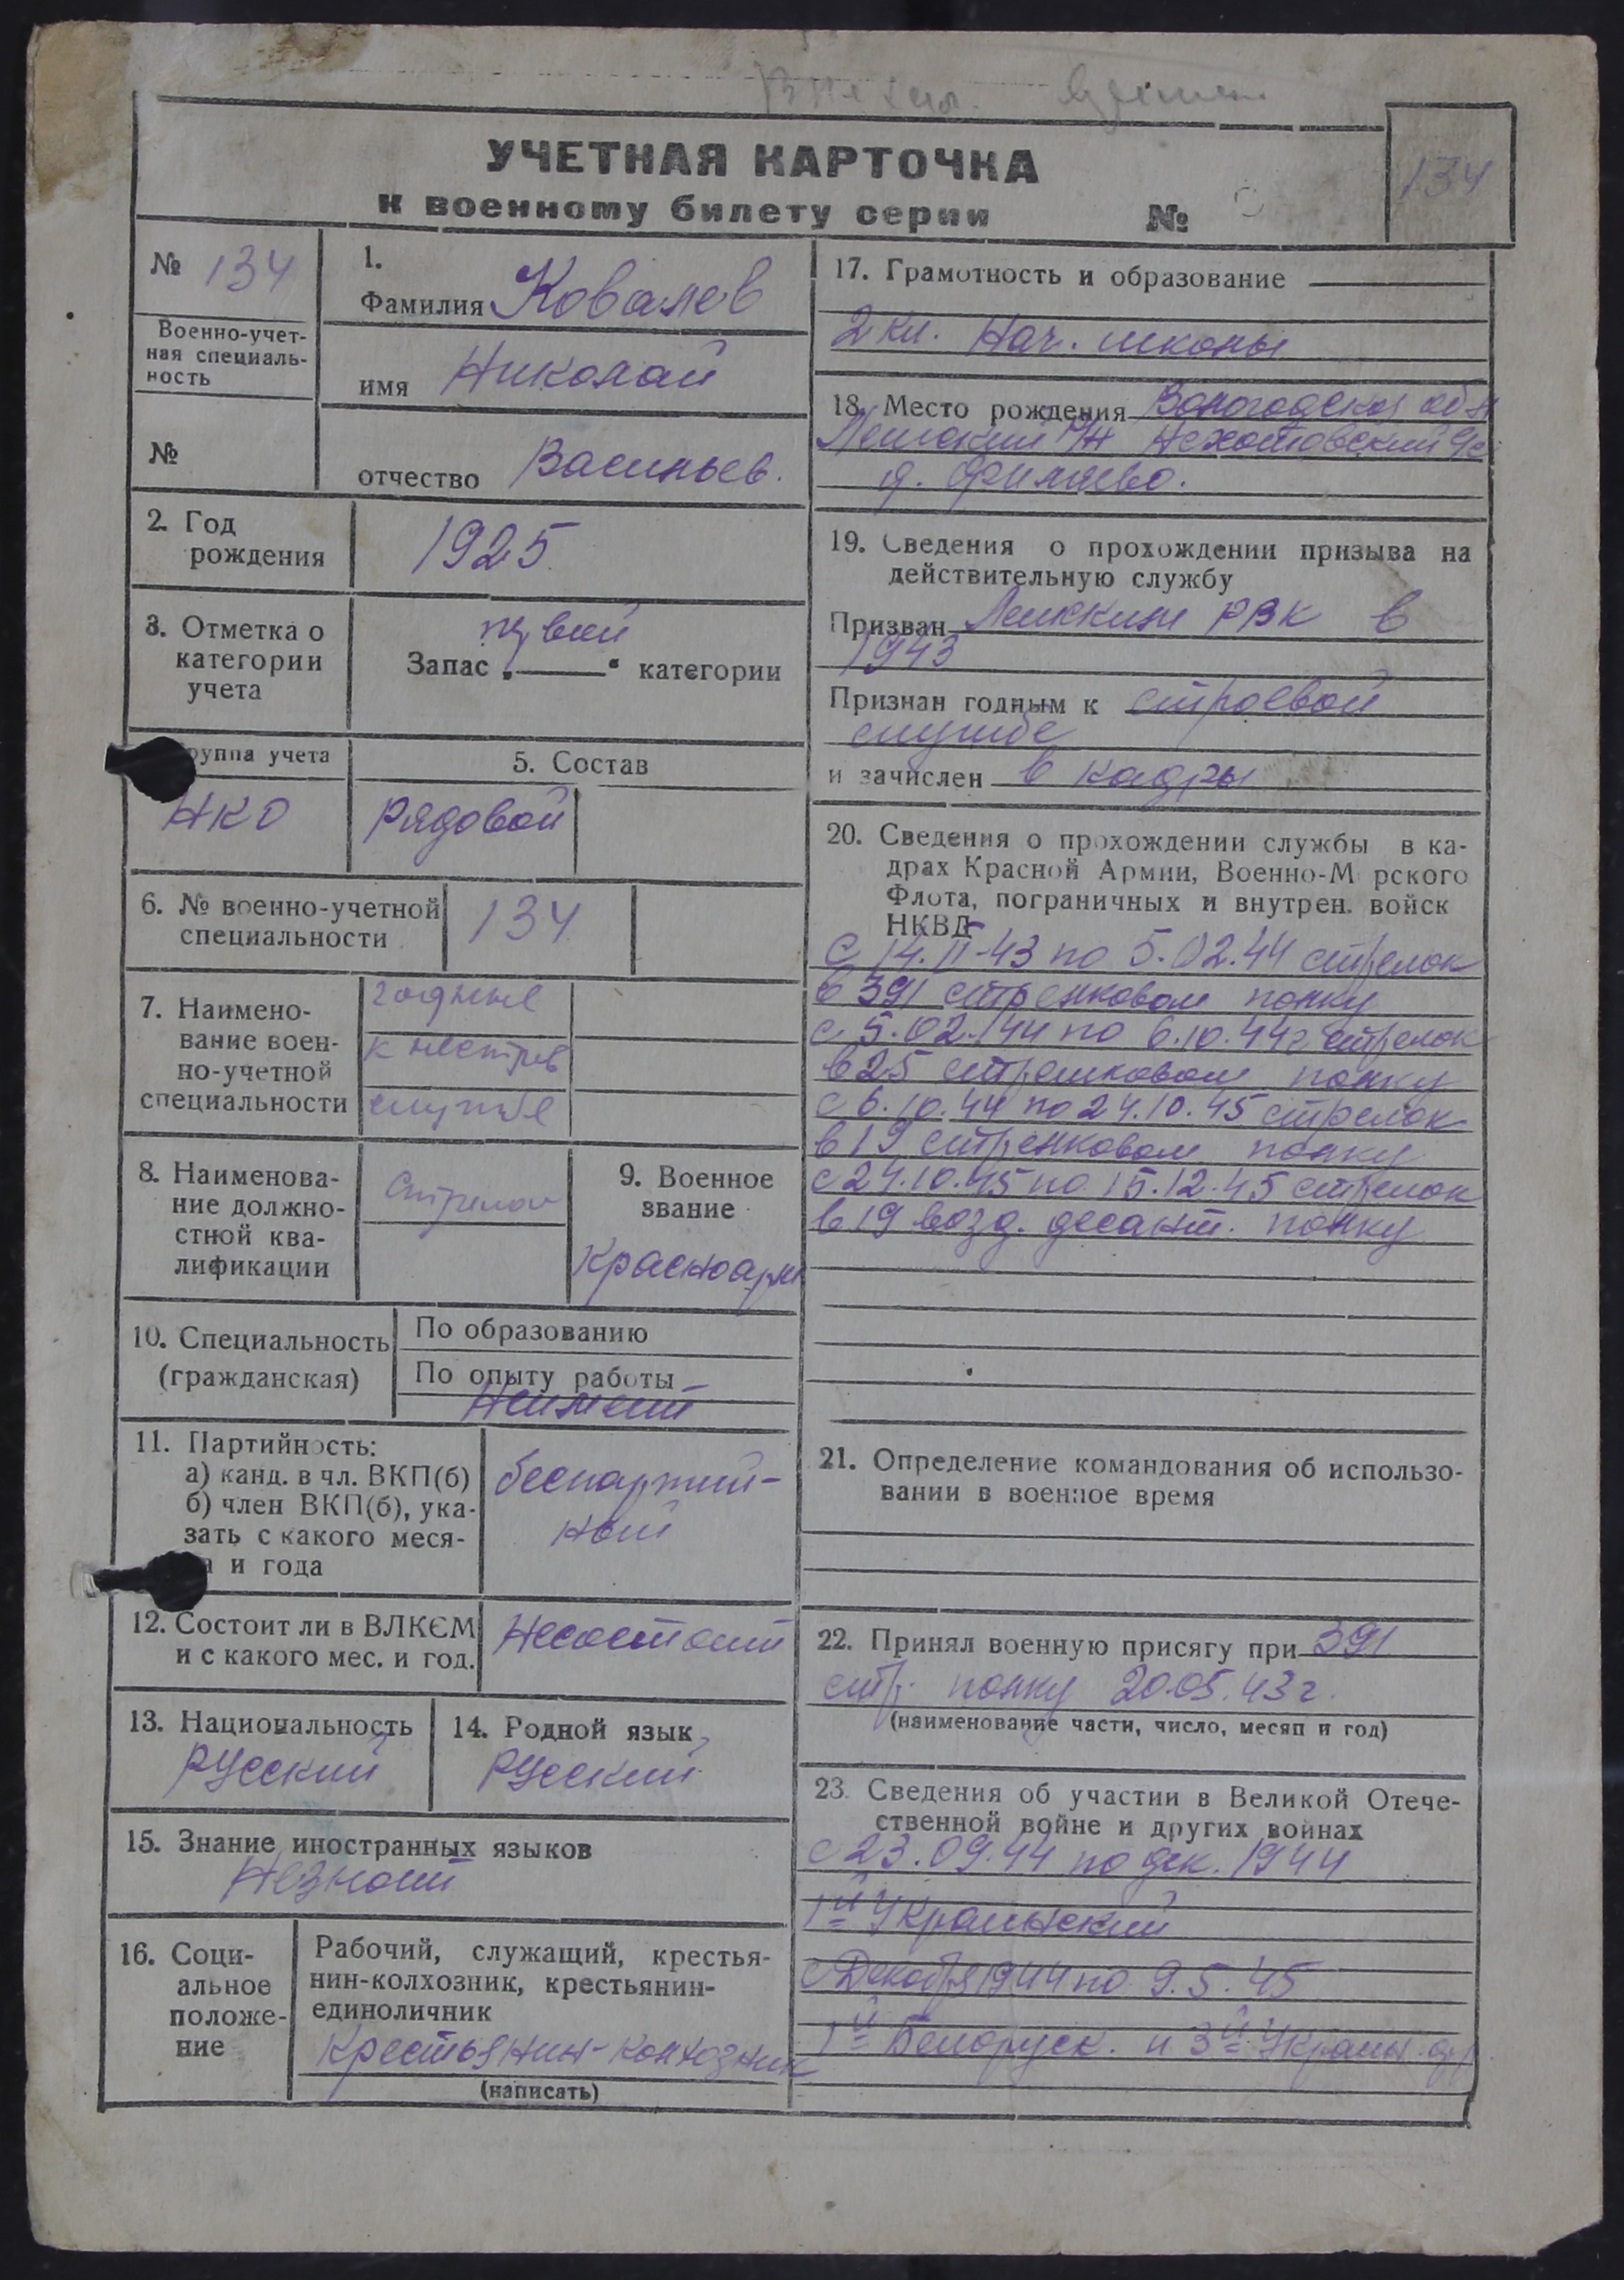 УЧЕТНАЯ КАРТОЧКА
к военному билету серии №
134
№ 134
Военно-учет-
ная специаль-
ность
№
1.
Фамилия Ковалев
имя Николай
отчество Васильев.
2. Год
рождения
1925
3. Отметка о
категории
учета
Запас „ " категории
руппа учета
НКО
5. Состав
рядовой
6. № военно-учетной
специальности
134
7. Наимено-
вание воен-
но-учетной
специальности
годные
к нестроев
службе
8. Наименова-
ние должно-
стной ква-
лификации
Стрелок
9. Военное
звание
Красноарм
10. Специальность
(гражданская)
По образованию
По опыту работы
Неимеет
11. Партийность:
а) канд. в чл. ВКП(б)
б) член ВКП(б), ука-
зать с какого меся-
а и года
беспартий-
ный
12. Состоит ли в ВЛКСМ
и с какого мес. и год.
Несостоит
13. Национальность
русский
14. Родной язык
русский
15. Знание иностранных языков
Незнает
16. Соци-
альное
положе-
ние
Рабочий, служащий, крестья-
нин-колхозник, крестьянин-
единоличник
Крестьянин-колхозник
(написать)
17. Грамотность и образование
2 кл. Нач. школы
18. Место рождения Вологодская обл
р/н
д. Филяево.
19. Сведения о прохождении призыва на
действительную службу
Призван РВК в
1943
Признан годным к строевой
службе
и зачислен в кадры
20. Сведения о прохождении службы в ка-
драх Красной Армии, Военно-М рского
Флота, пограничных и внутрен. войск
НКВД
с 14.11-43 по 5.02.44 стрелок
в 391 стрелковом полку
с 5.02.44 по 6.10.44г стрелок
в 25 стрелковом полку
с 6.10.44 по 24.10.45 стрелок
в 19 стрелковом полку
с 24.10.45 по 15.12.45 стрелок
в 19 возд. десант. полку
21. Определение командования об использо-
вании в военное время
22. Принял военную присягу при 391
стр. полку 20.05.43г.
(наименование части, число, месяц и год)
23. Сведения об участии в Великой Отече-
ственной войне и других войнах
с 23.09.44 по дек. 1944
1й Украинский
с Декабря 1944 по 9.5.45
1й Белоруск. и 3й Украин. фр